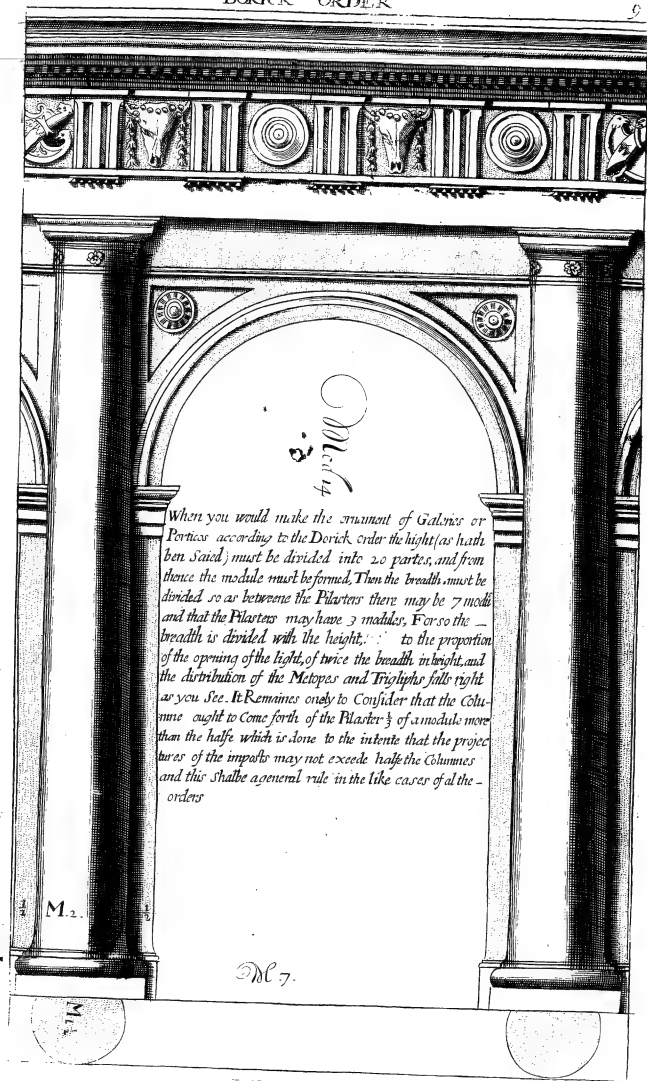 DORICK ORDER 9
Mod 14
When you would make the ornament of Galeries or
Porticos according to the Dorick order the hight (as hath
ben Saied) must be divided into 20 partes, and from
thence the module must be formed, Then the breadth must be
divided so as betweene the Pilasters there may be 7 moduli
and that the Pilasters may have 3 modules, For so the _
breadth is divided with the height, to the proportion
of the opening of the light, of twice the breadth in height, and
the distribution of the Metopes and Trigliphs falls right
as you See. It Remaines onely to Consider that the Colu-
mne ought to Come forth of the Pilaster ⅓ of a module more
than the halfe which is done to the intente that the projec
tures of the imposts may not exceede halfe the Columnes
and this Shalbe a general rule in the like cases of al the _
orders
½ M.2. ½
M 7.